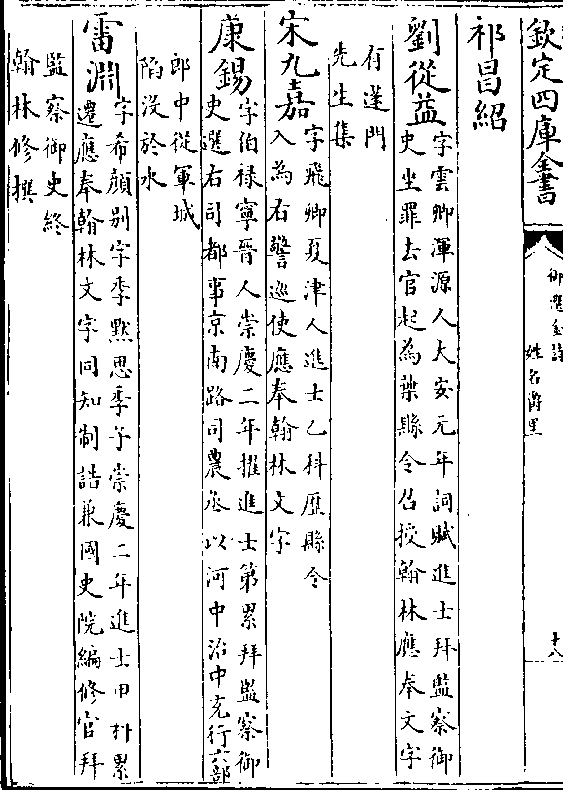 欽定四庫全書
御選金詩
姓名爵里
十八
祁昌紹
劉從益
字雲卿渾源人大安元年詞賦進士拜監察御
史坐罪去官起為葉縣令召授翰林應奉文字
有蓬門
先生集
宋九嘉
字飛卿夏津人進士乙科歷縣令
入為右警巡使應奉翰林文字
康錫
字伯祿寧晉人崇慶二年擢進士第累拜監察御
史選右司都事京南路司農丞以河中治中充行六部
郎中從軍城
陷沒於水
雷淵
字希顏别字季黙思季子崇慶二年進士甲科累
遷應奉翰林文字同知制誥兼國史院編修官拜
監察御史終
翰林修撰